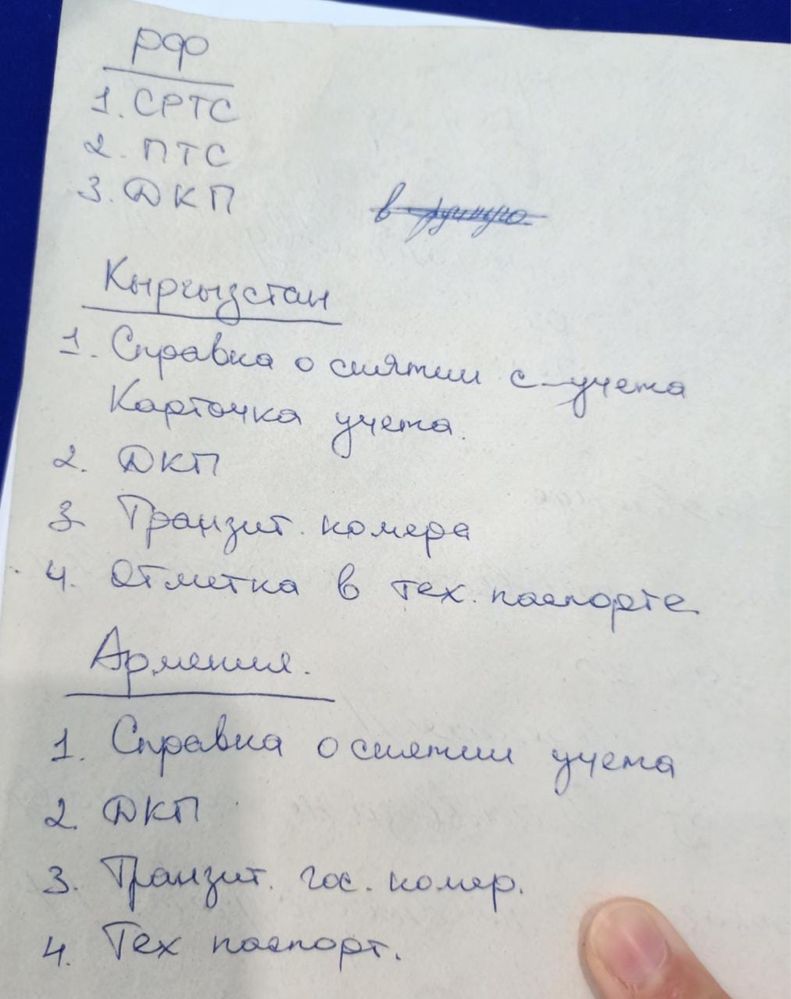 РФ
1. СРТС
2. ПТС
3. ДКП
Кыргызстан
1. Справка о снятии с учета
Карточка учета.
2. ДКП
3. Транзит. номера
4. Отметка в тех. паспорте
Армения.
1. Справка о снятии учета
2. ДКП
3. Транзит. гос. номер.
4. Тех паспорт.